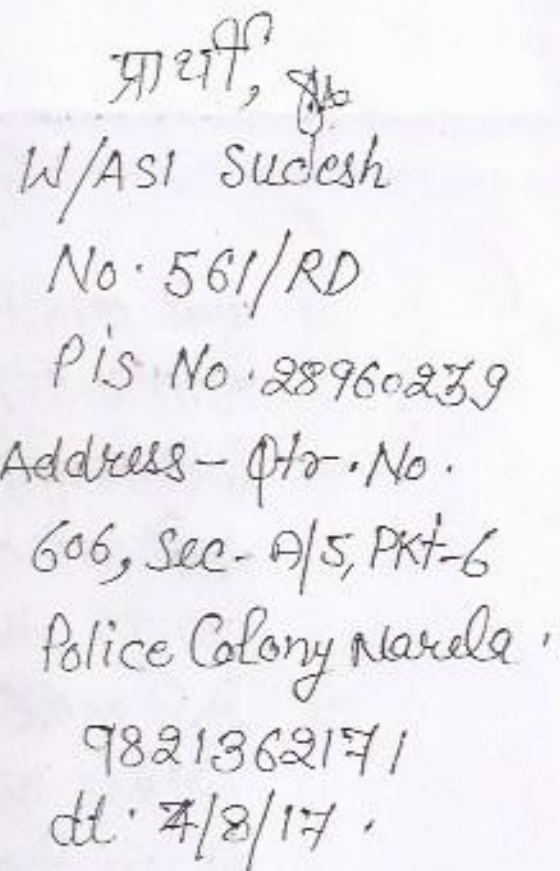 प्रार्थी,
W/ASI Sudesh
No. 561/RD
PIS No. 28960239
Address - Qtr. No.
606, Sec- A/5, PKt-6
Police Colony Narela.
9821362171
dt. 7/8/17.